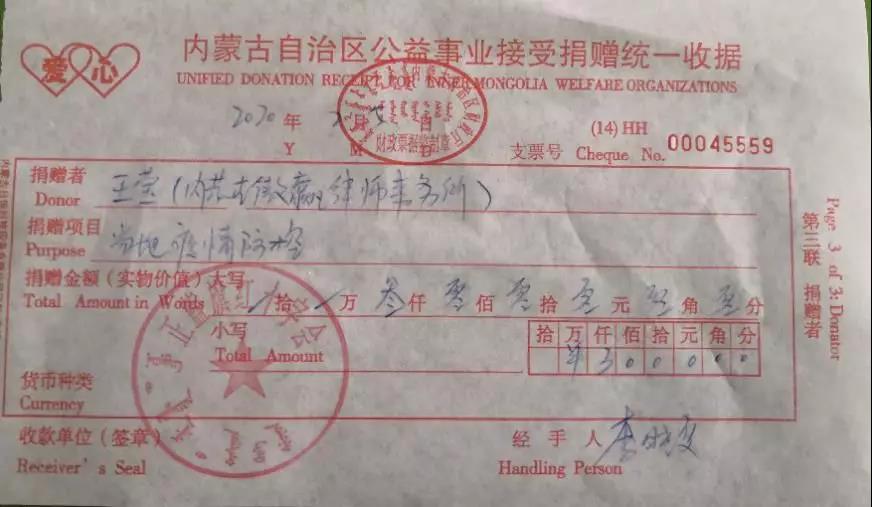 爱心
内蒙古自治区公益事业接受捐赠统一收据
UNIFIED DONATION RECEIPT FOR INNER MONGOLIA WELFARE ORGANIZATIONS
2020 年 月 日
Y M D
财政票据监制章
(14) HH
支票号 Cheque No. 00045559
捐赠者
Donor 王莹(内蒙古徽赢律师事务所)
捐赠项目
Purpose 当地疫情防控
捐赠金额(实物价值)大写
Total Amount in Words 拾 万 叁仟 零佰 零拾 零元 零角 零分
小写
Total Amount
拾 万 仟 佰 拾 元 角 分
¥ 3 0 0 0 0 0
货币种类
Currency
正蓝旗红十字会
收款单位(签章)
Receiver's Seal
经手人 李
Handling Person
第三联 捐赠者
Page 3 of 3: Donator